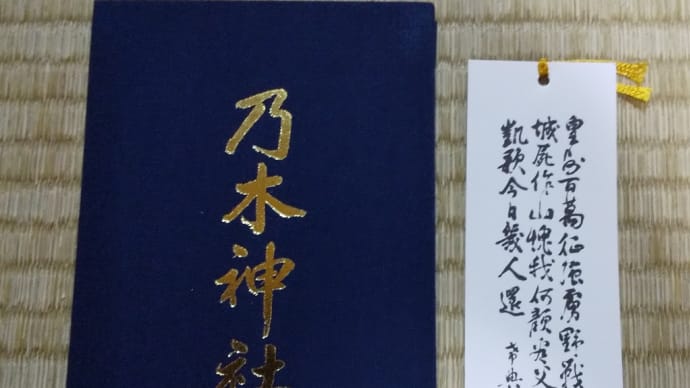 乃木神社
皇師百萬征強虜野戰
城屍作山愧我何顔看父
凱歌今日幾人還 希典